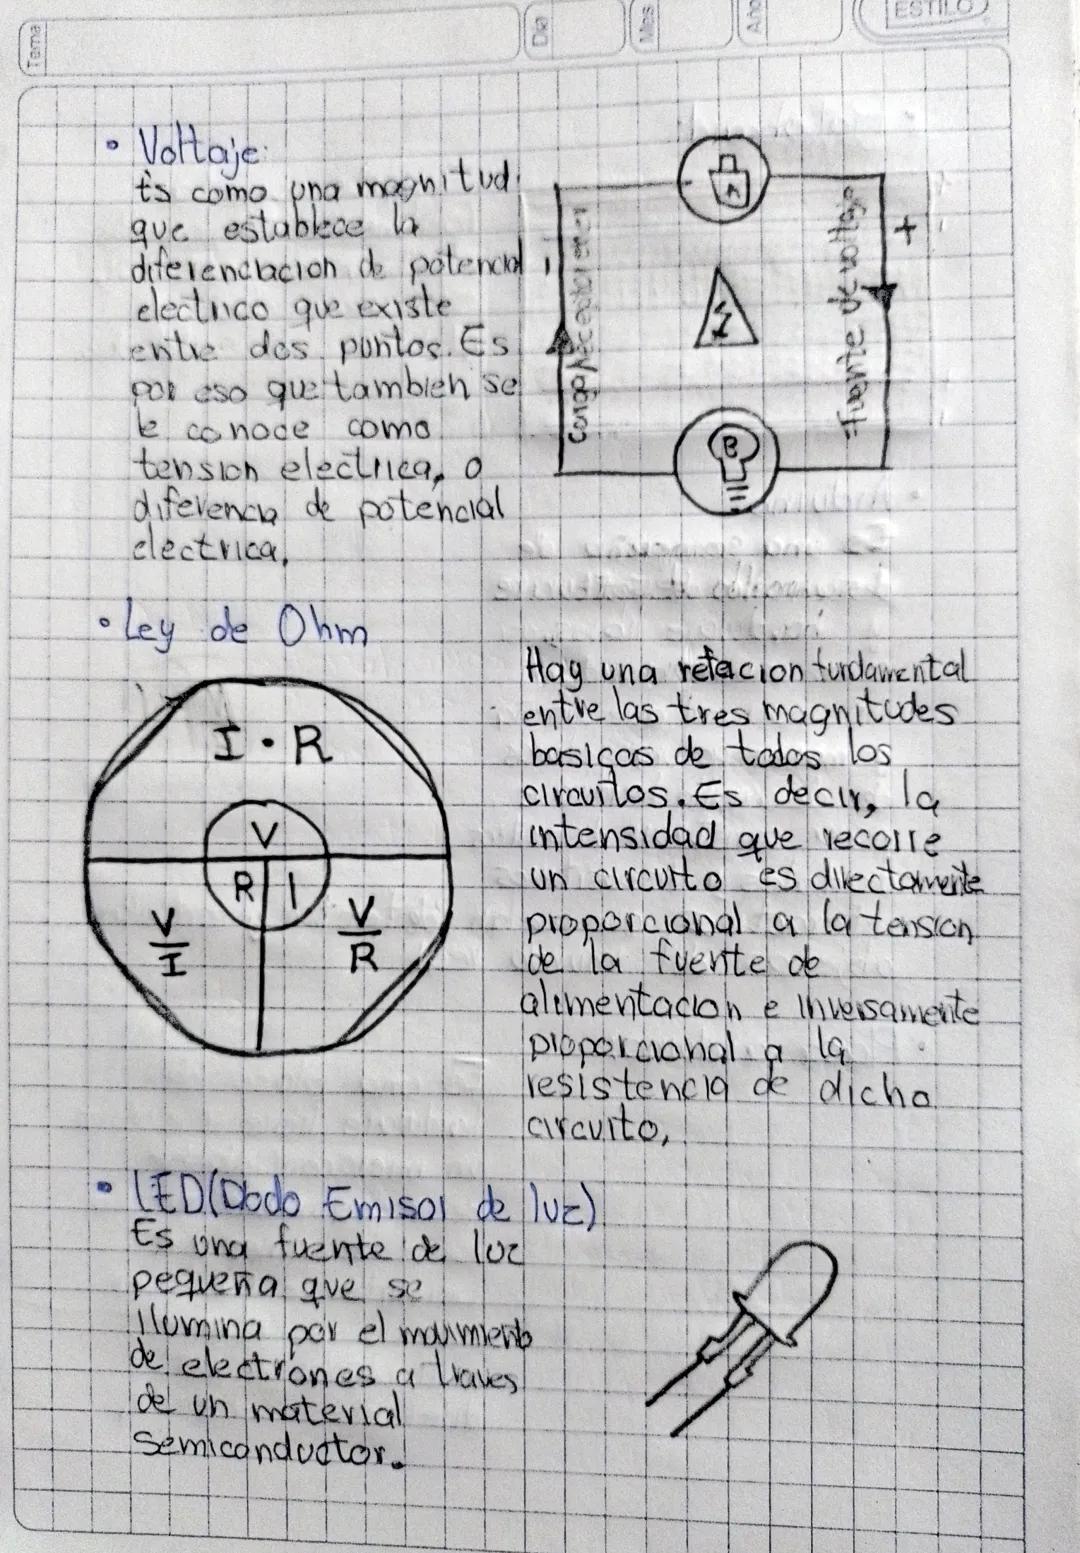 Tema
Dia
Mes
Año
ESTILO
• Voltaje:
Es como una magnitud
que establece la
diferenciacion de potencial
electrico que existe
entre dos puntos. Es
por eso que tambien se
le conoce como
tension electrica, o
diferencia de potencial
electrica.
A
B
-
+
Fuente de voltaje
• Ley de Ohm
I · R
V
R I
V
I
V
R
Hay una relacion fundamental
entre las tres magnitudes
basicas de todos los
circuitos. Es decir, la
intensidad que recorre
un circuito es directamente
proporcional a la tension
de la fuente de
alimentacion e inversamente
proporcional a la
resistencia de dicho
circuito,
• LED(Diodo Emisor de luz)
Es una fuente de luz
pequeña que se
ilumina por el movimiento
de electrones a traves
de un material
semiconductor.